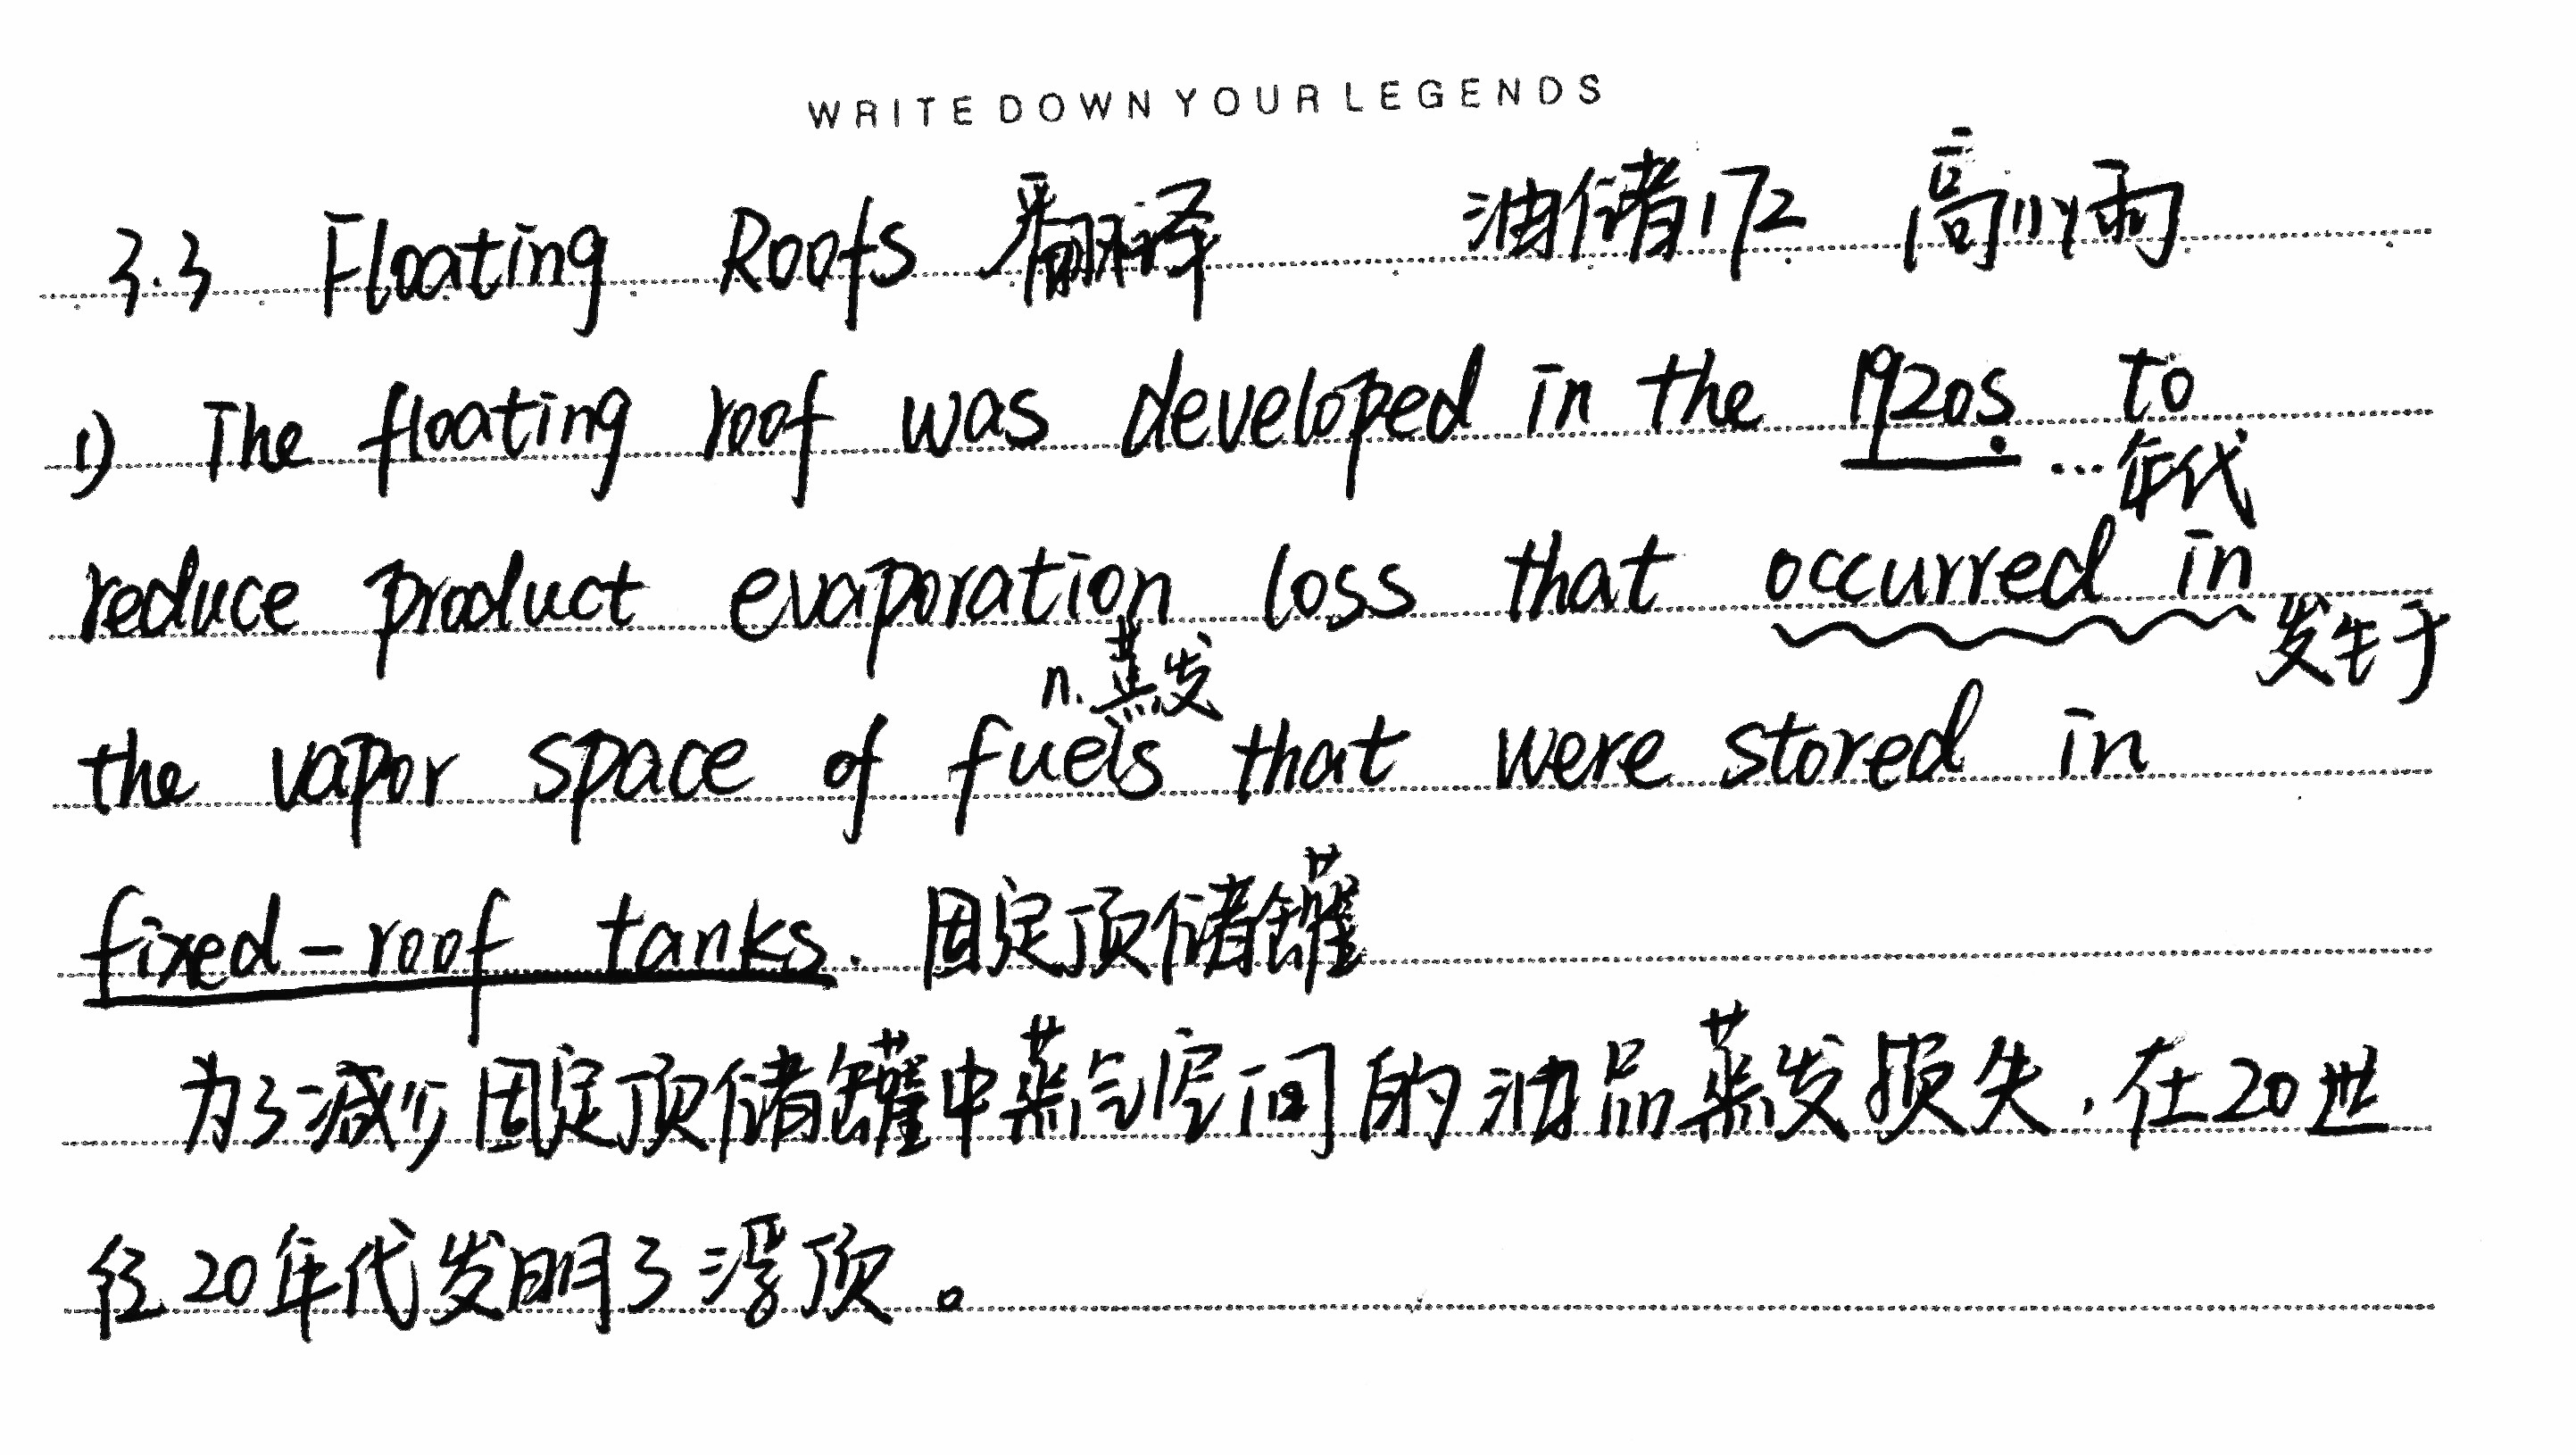 WRITE DOWN YOUR LEGENDS
3.3 Floating Roofs 翻译 油储172 高小雨
1) The floating roof was developed in the 1920s to
…年代
reduce product evaporation loss that occurred in
n.蒸发 发生于
the vapor space of fuels that were stored in
fixed-roof tanks. 固定顶储罐
为了减少固定顶储罐中蒸汽空间的油品蒸发损失,在20世
纪20年代发明了浮顶。